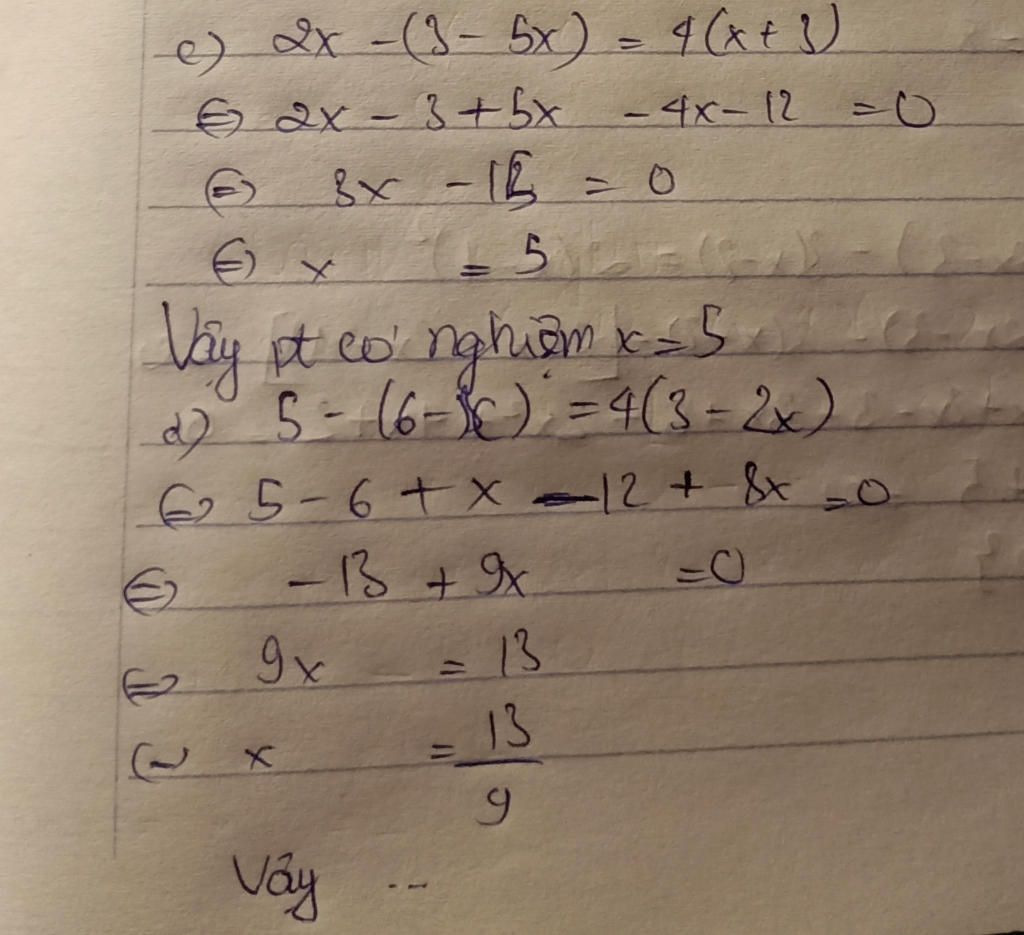 c) 2x - (3 - 5x) = 4(x + 3)
⇔ 2x - 3 + 5x - 4x - 12 = 0
⇔ 3x - 15 = 0
⇔ x = 5
Vậy pt có nghiệm x = 5
d) 5 - (6 - x) = 4(3 - 2x)
⇔ 5 - 6 + x - 12 + 8x = 0
⇔ - 13 + 9x = 0
⇔ 9x = 13
⇔ x = 13/9
Vậy ...